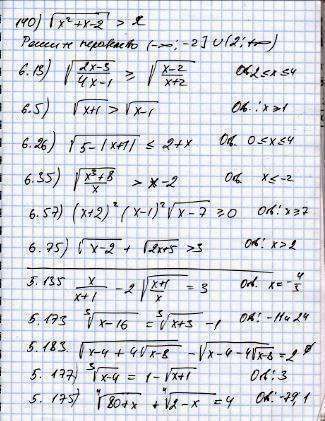 140) √(x²+x-2) > 2
Решите неравенство (-∞; -2] ∪ (2; +∞)
6.13) √((2x-3)/(4x-1)) ≥ √((x-2)/(x+2)) Ов 2≤x≤4
6.5) √(x+1) > √(x-1) Ов: x≥1
6.26) √(5-|x+1|) ≤ 2+x Ов. 0≤x≤4
6.35) √((x³+8)/x) > x-2 Ов. x≤-2
6.57) (x+2)² (x-1)² √(x-7) ≥0 Ов: x≥7
6.75) √(x-2) + √(2x+5) >3 Ов: x>2
5.135 x/(x+1) - 2√((x+1)/x) = 3 Ов: x=-4/3
5.173 ³√(x-16) = ³√(x+3) -1 Ов: -11 и 24
5.183. √(x-4+4√(x-8)) - √(x-4-4√(x-8)) = 2 ∅
5.177) ³√(x-4) = 1-√(x+1) Ов: 3
5.175) ⁴√(80+x) + ⁴√(2-x) = 4 Ов: -79, 1